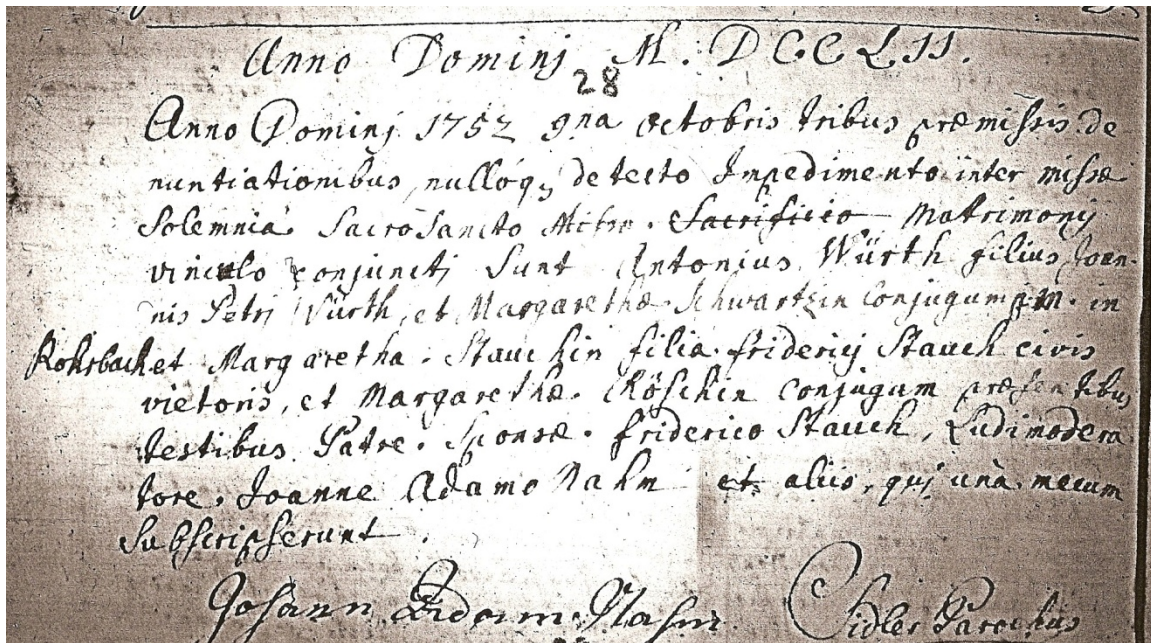 Anno Dominj M. DCCLII.
28
Anno Dominj 1752 9na octobris tribus præmissis de
nuntiationibus, nulloq, detecto Impedimento inter missæ
Solemnia Sacrosancto Sacrificio Matrimonij
vinculo conjuncti sunt Antonius Würth filius Joan-
nis Petrj Würth, et Margarethæ Schwartzin conjugum in
Rohrbach et Margaretha Stauchin filia friderici Stauch civis
vietoris, et Margarethæ Röschin conjugum præsentibus
testibus Patre Sponsæ friderico Stauch, Ludimodera
tore Joanne Adamo Nahm et aliis, quj unà mecum
Subscripserunt.
Johann Adam Nahm Sidler Parochus